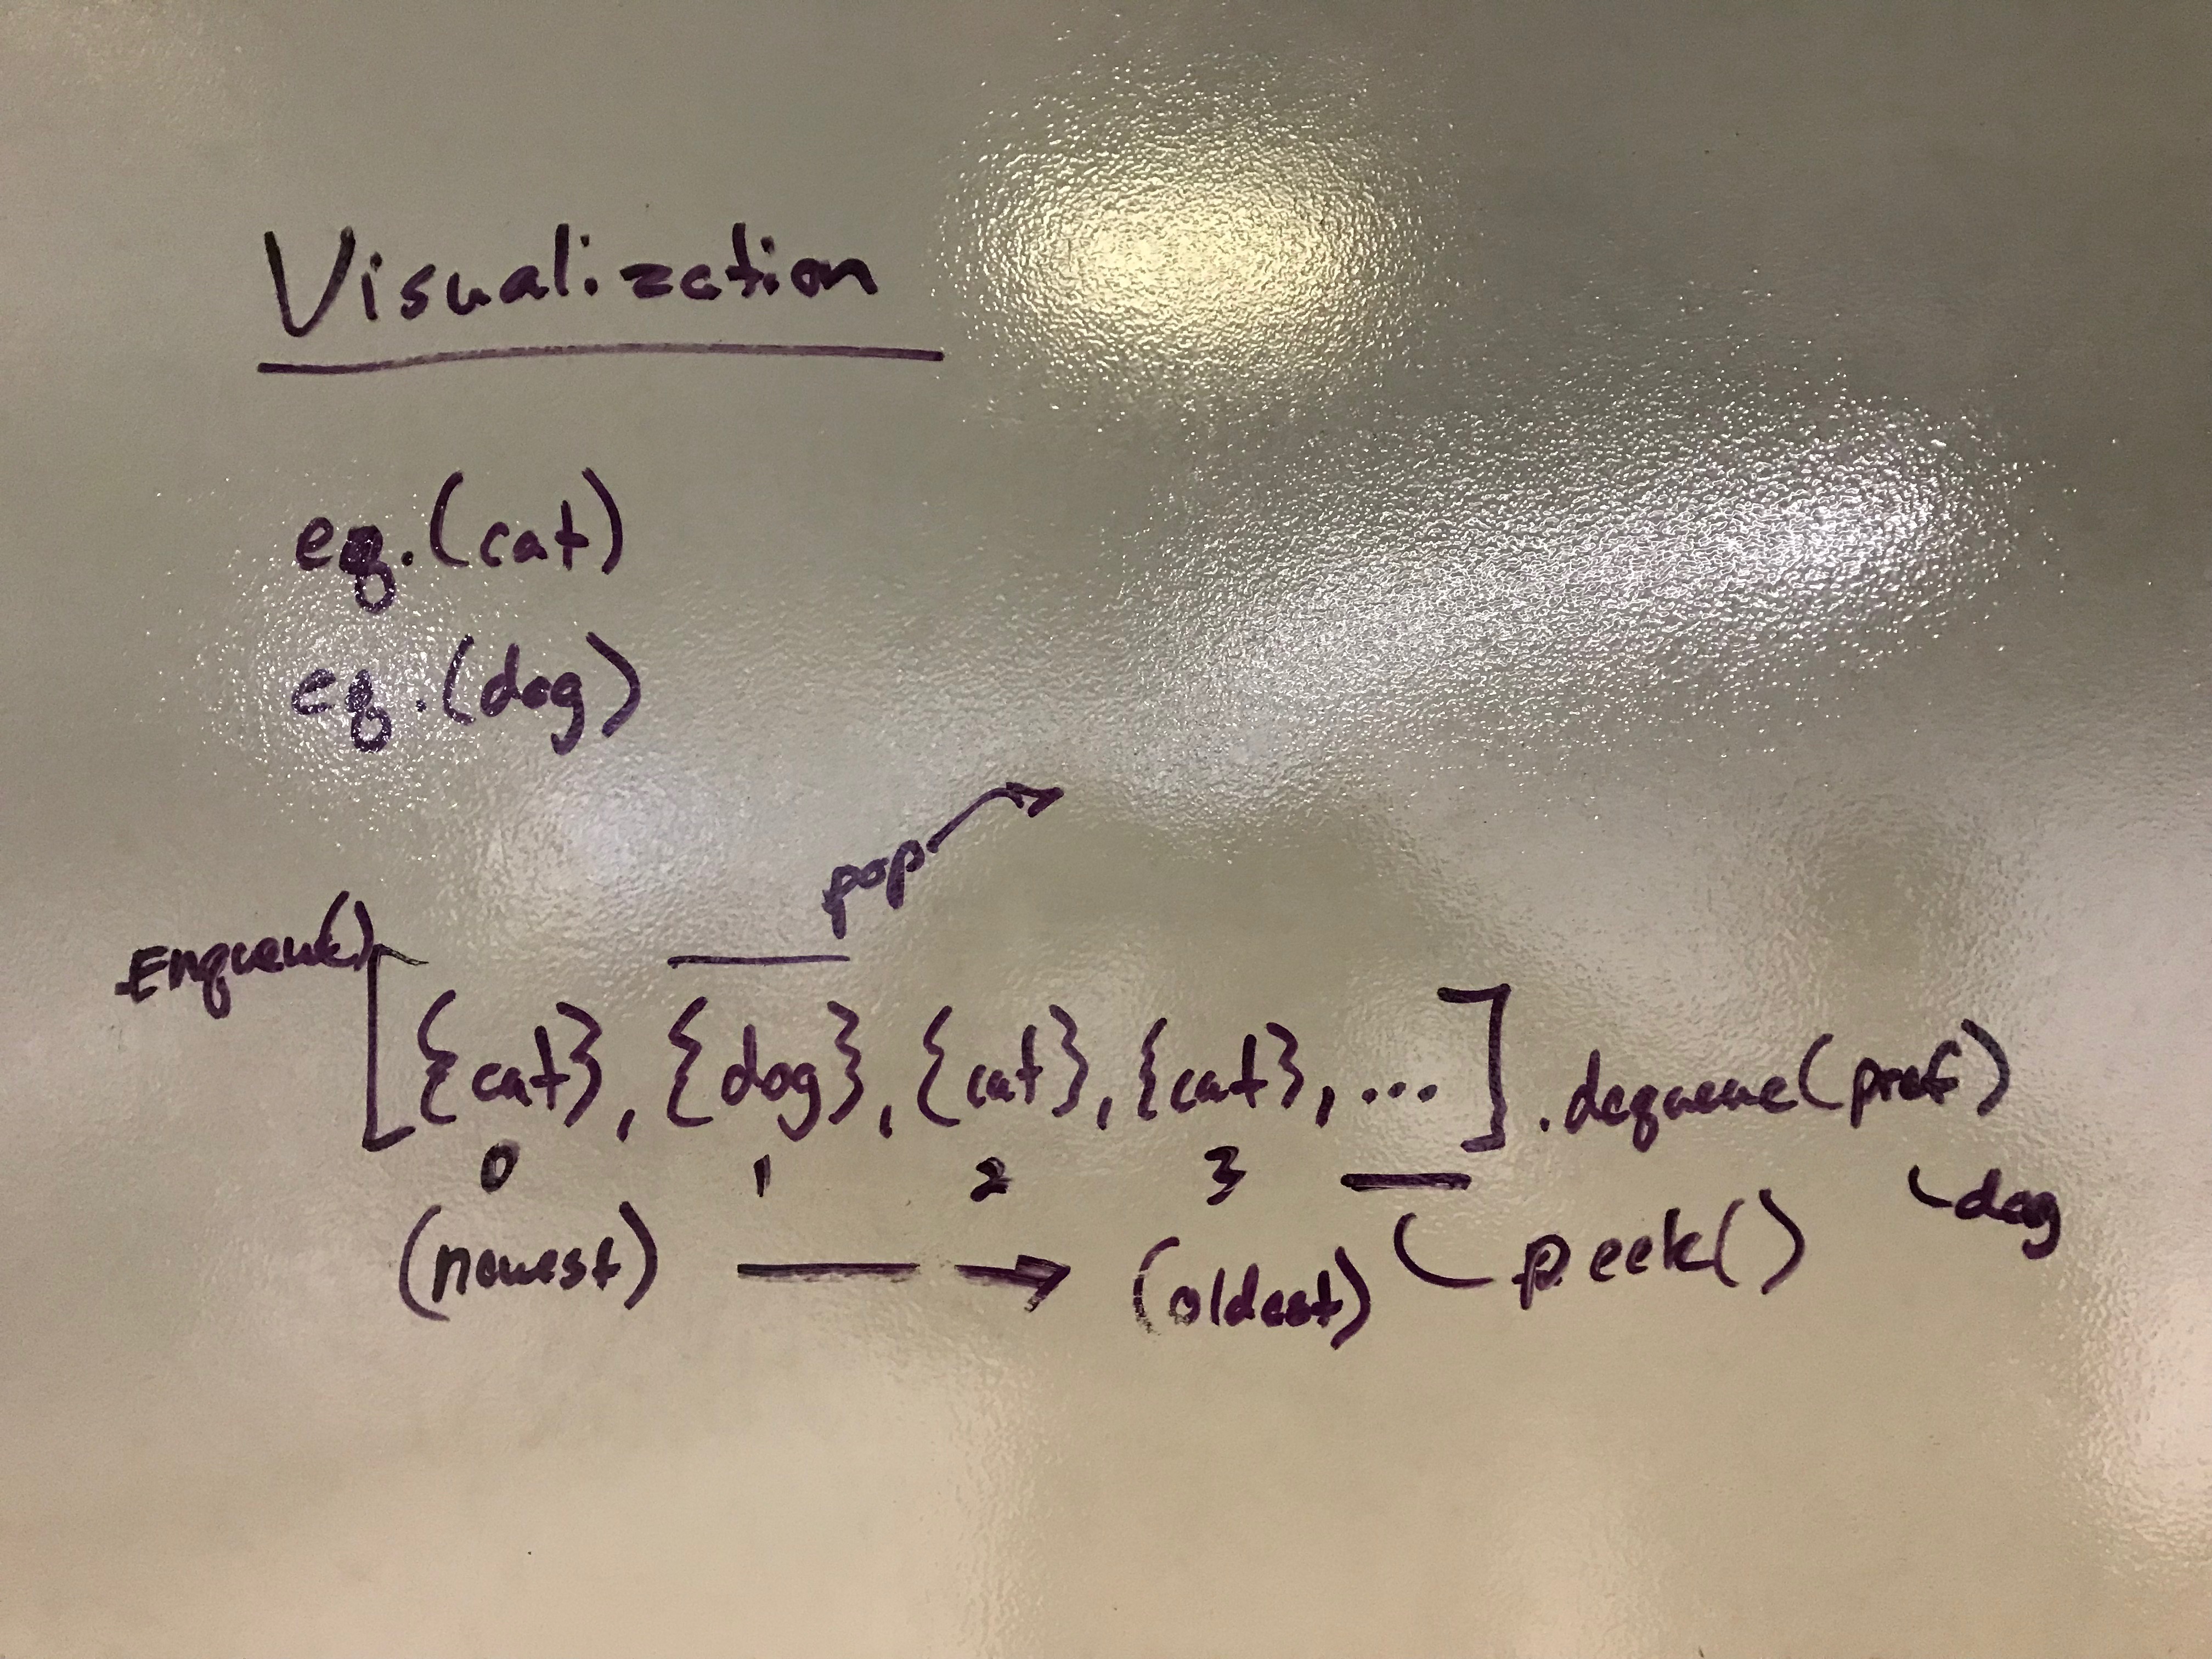 Visualization
eq.(cat)
eq.(dog)
pop
.Enqueue()
[{cat}, {dog}, {cat}, {cat}, ...].dequeue(pref)
0 1 2 3
dog
(newest) (oldest) peek()